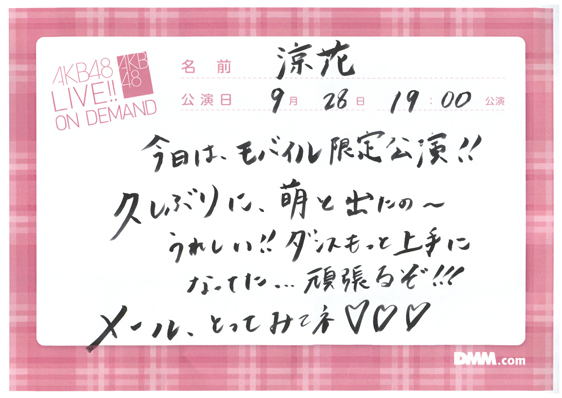 AKB48
LIVE!!
ON DEMAND
AKB
48
名前 涼花
公演日 9月 28日 19:00 公演
今日は、モバイル限定公演!!
久しぶりに、萌と出たの~
うれしい!! ダンスもっと上手に
なってた... 頑張るぞ!!!
メール、とってみてネ♡♡♡
DMM.com